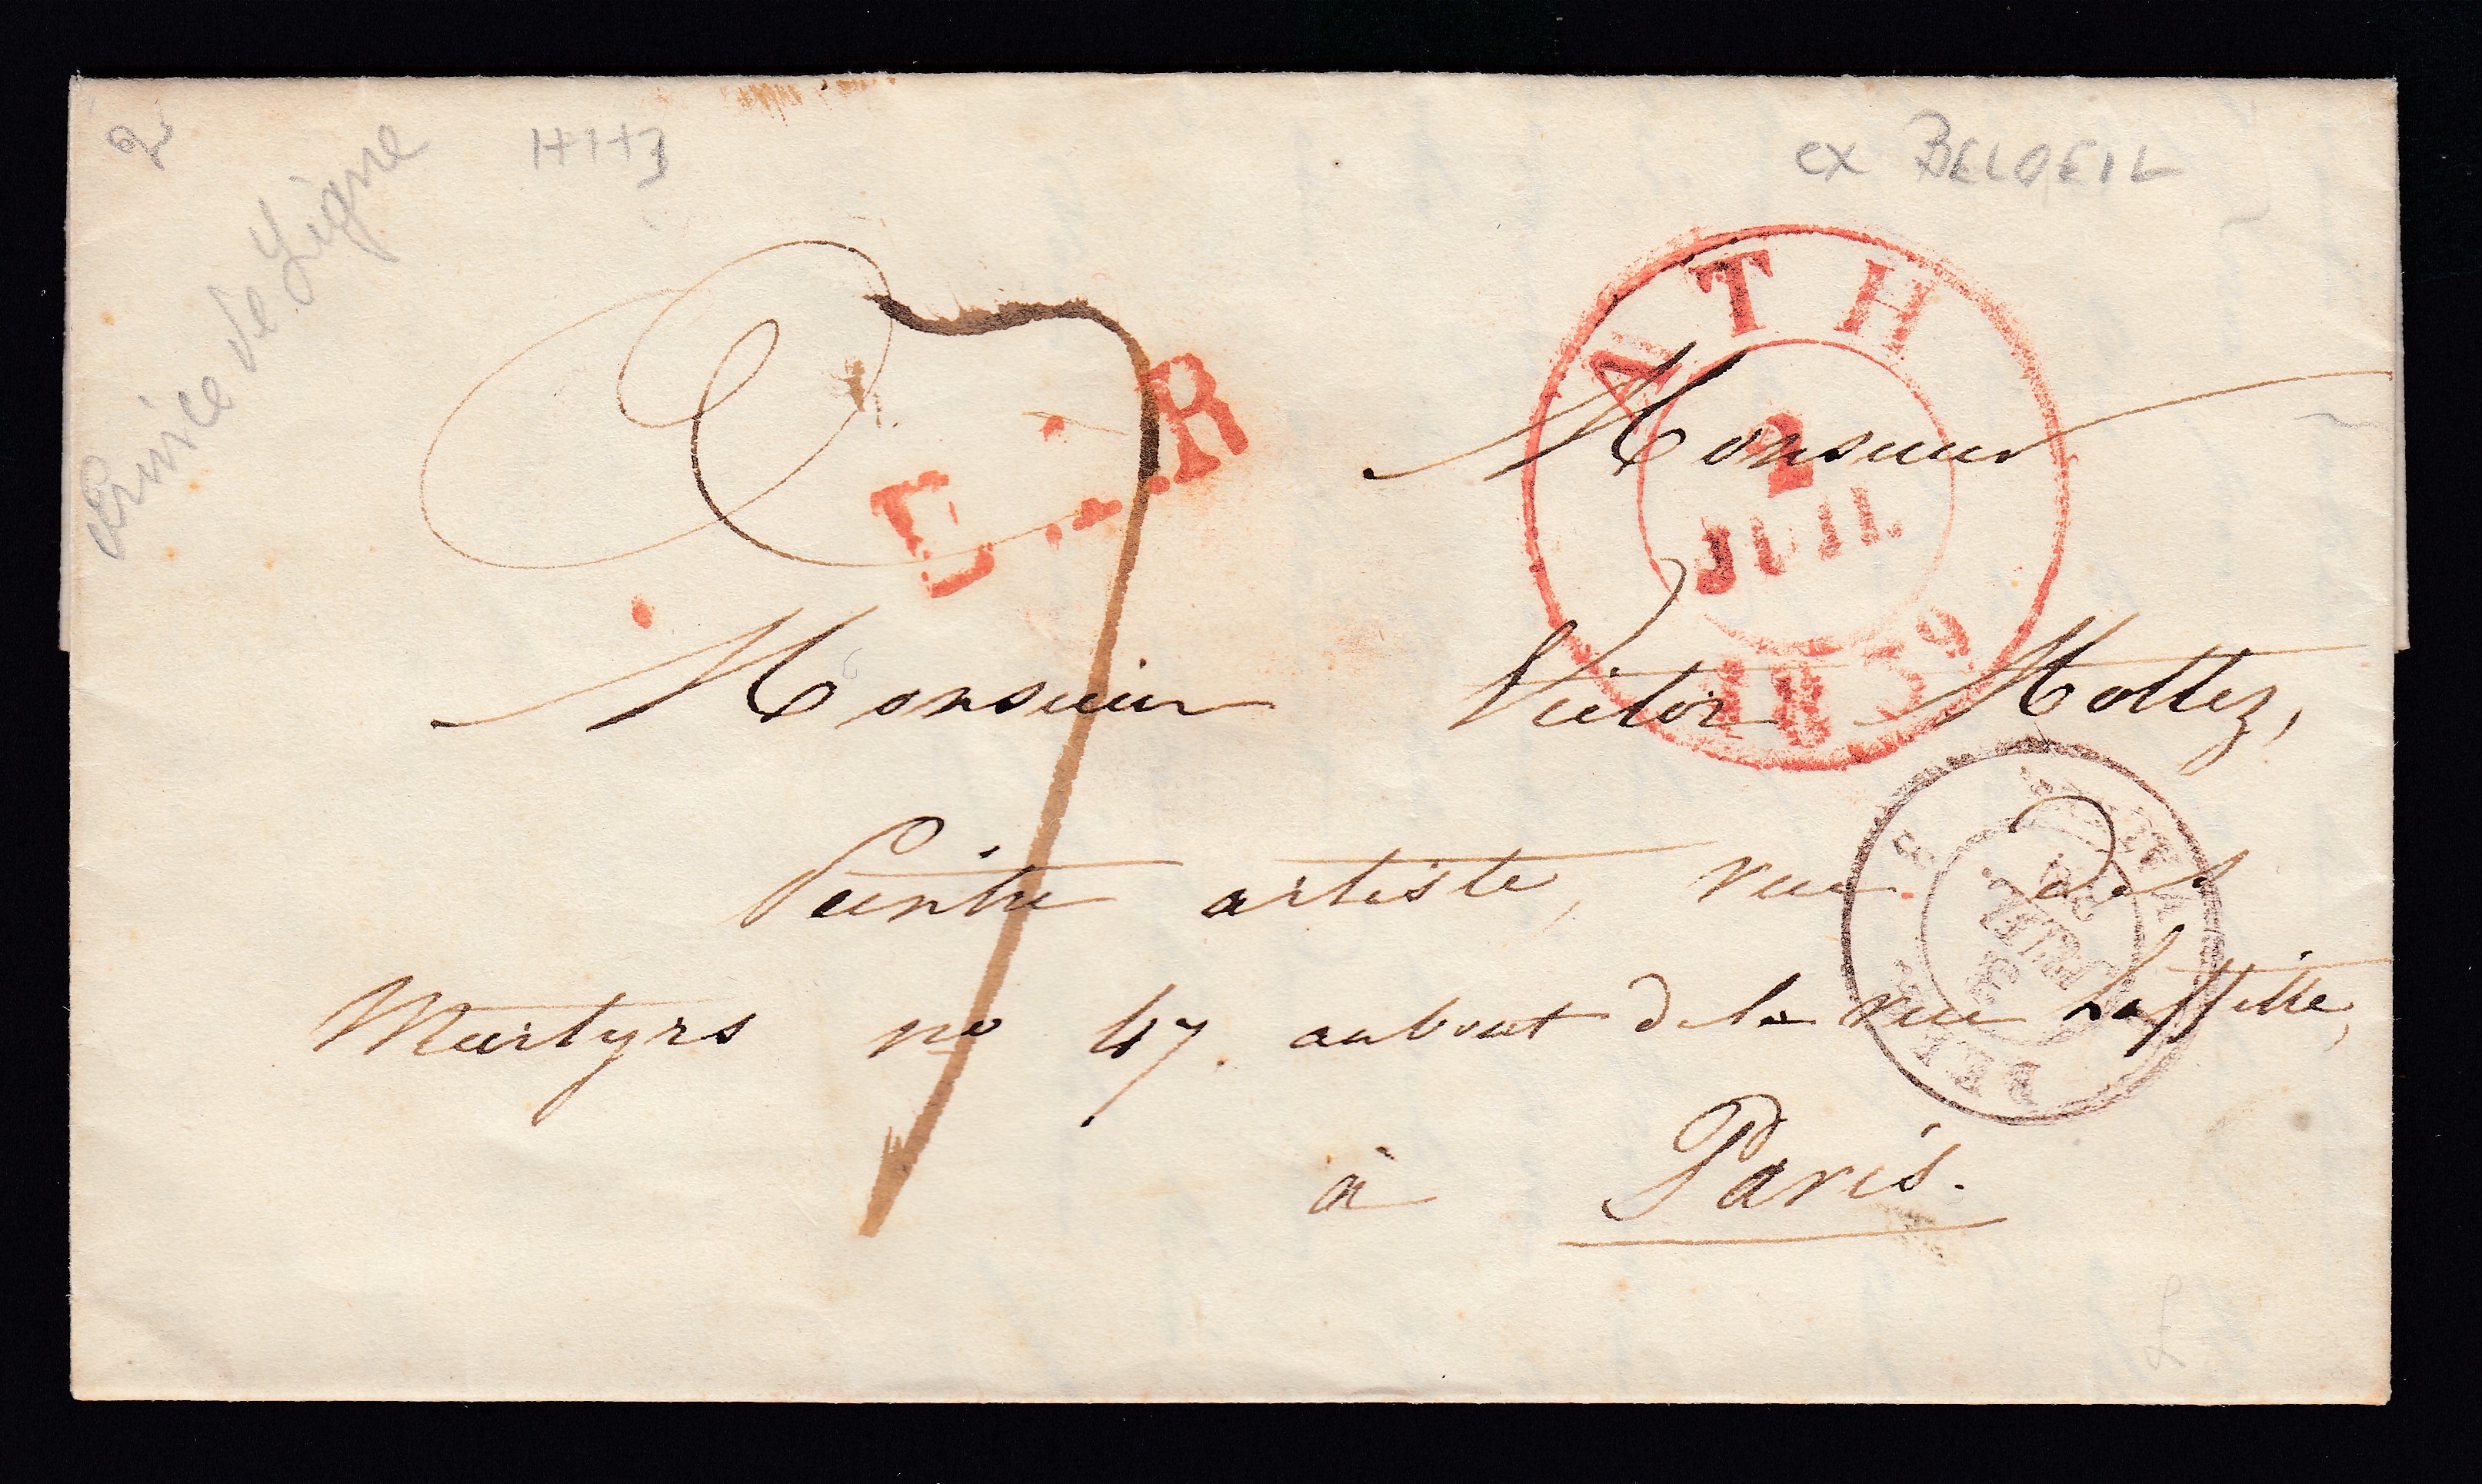 Prince de Ligne
1+1+3
ex BELOEIL
ATH
2
JUIL
1839
L.I.R
7
Monsieur
Monsieur Victor Mottez,
Peintre artiste, rue des
Martyrs no 47. au bout de la rue Laffitte,
à Paris.